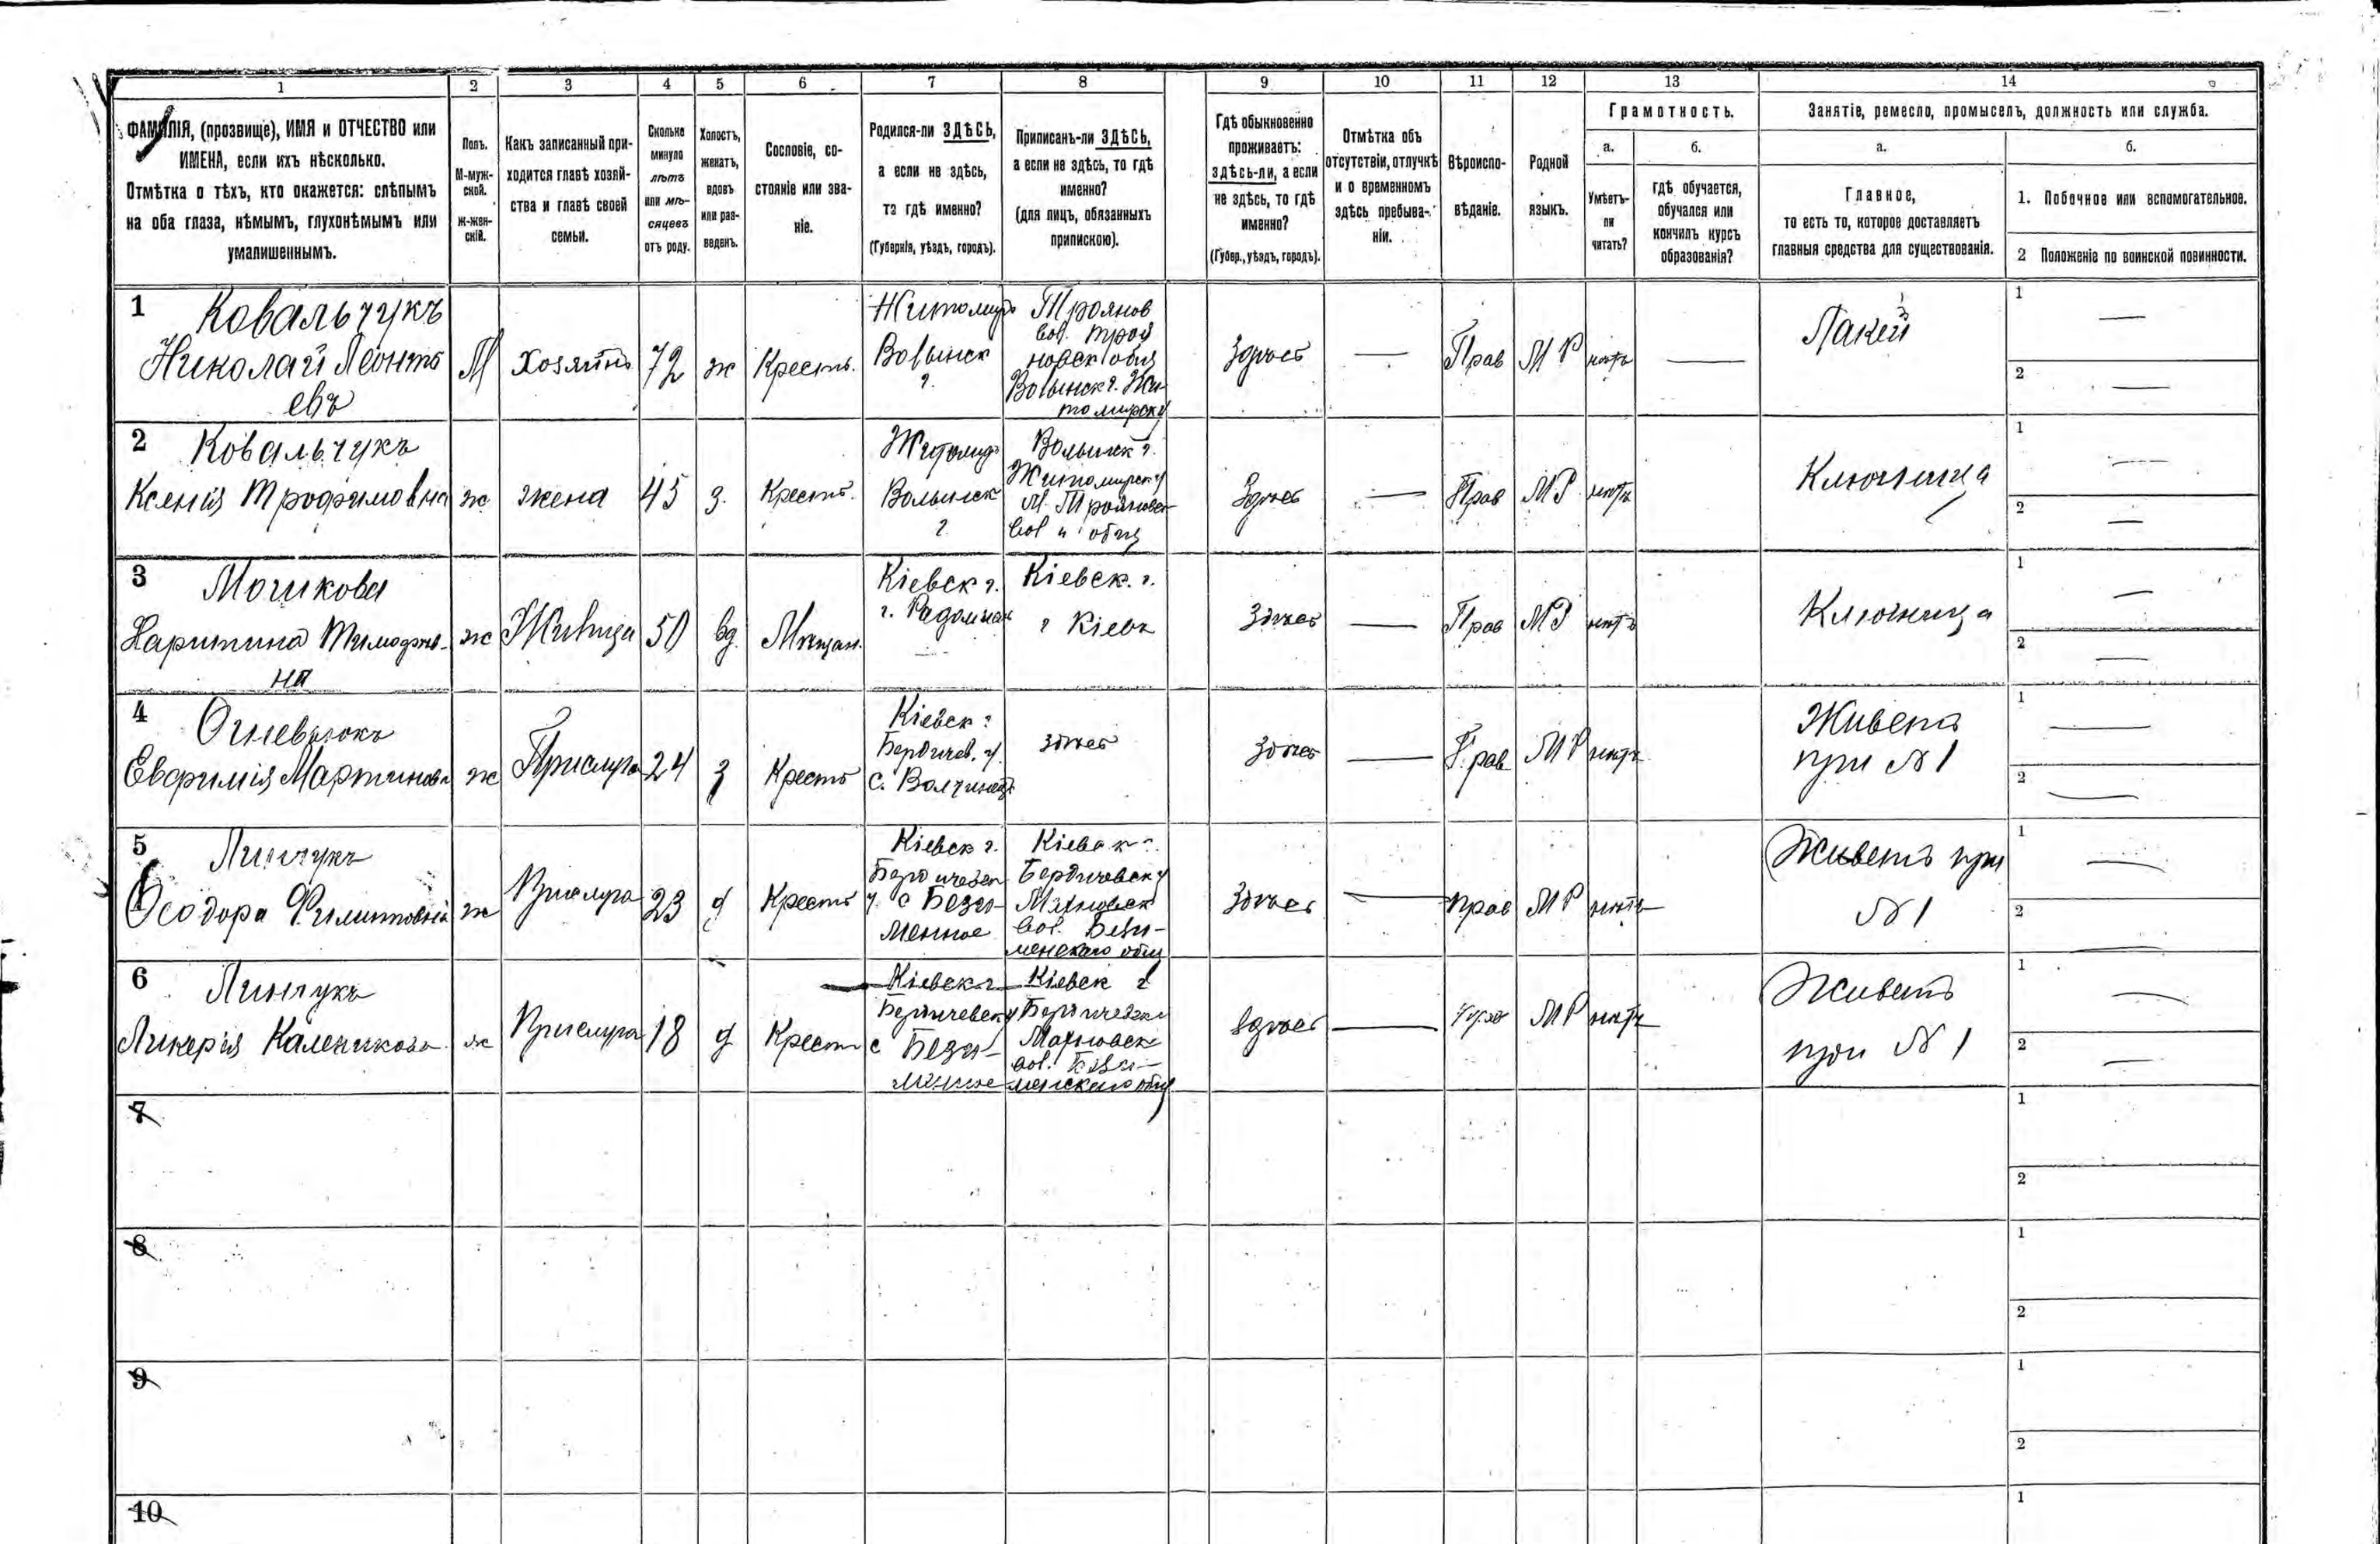 1 2 3 4 5 6 7 8 9 10 11 12 13 14
ФАМИЛІЯ, (прозвище), ИМЯ и ОТЧЕСТВО или
ИМЕНА, если ихъ нѣсколько.
Отмѣтка о тѣхъ, кто окажется: слѣпымъ
на оба глаза, нѣмымъ, глухонѣмымъ или
умалишеннымъ.
Полъ.
М-муж-
ской.
Ж-жен-
скій.
Какъ записанный при-
ходится главѣ хозяй-
ства и главѣ своей
семьи.
Сколько
минуло
лѣтъ
или мѣ-
сяцевъ
отъ роду.
Холостъ,
женатъ,
вдовъ
или раз-
веденъ.
Сословіе, со-
стояніе или зва-
ніе.
Родился-ли ЗДѢСЬ,
а если не здѣсь,
то гдѣ именно?
(Губернія, уѣздъ, городъ).
Приписанъ-ли ЗДѢСЬ,
а если не здѣсь, то гдѣ
именно?
(для лицъ, обязанныхъ
припискою).
Гдѣ обыкновенно
проживаетъ:
здѣсь-ли, а если
не здѣсь, то гдѣ
именно?
(Губер., уѣздъ, городъ).
Отмѣтка объ
отсутствіи, отлучкѣ
и о временномъ
здѣсь пребыва-
ніи.
Вѣроиспо-
вѣданіе.
Родной
языкъ.
Грамотность.
а.
Умѣетъ-
ли
читать?
б.
гдѣ обучается,
обучался или
кончилъ курсъ
образованія?
Занятіе, ремесло, промыселъ, должность или служба.
а.
Главное,
то есть то, которое доставляетъ
главныя средства для существованія.
б.
1. Побочное или вспомогательное.
2 Положеніе по воинской повинности.
1 Ковальчукъ
Николай Леонть
евъ
М
Хозяинъ
72
ж
Крестъ.
Житомир
Волынск
г.
Троянов
вол. Троя
новск общ
Волынск г. Жи
томирск у
Здѣсь
—
Прав
М Р
нѣтъ
—
Лакей
1 —
2 —
2 Ковальчукъ
Ксенія Трофимовна
ж
жена
45
з.
Крестъ.
Житомир
Волынск
г.
Волынск г.
Житомирск у
М. Трояновск
вол и общ
Здѣсь
—
Прав
МР
нѣтъ
Ключница
1 —
2 —
3
Харитина Тимофѣев-
на
ж
Живица
50
вд.
Мѣщан.
Кіевск г.
Кіевск. г.
г Кіевъ
Здѣсь
—
Прав
МР
нѣтъ
Ключница
1 —
2 —
4
Евфимія Мартинова
ж
Прислуга
24
з
Крестъ
Кіевск г
Бердичев. у.
с.
здѣсь
здѣсь
—
Прав
МР
нѣтъ
Живетъ
при №1
1 —
2 —
5 Линчукъ
Ѳеодора Филипповна
ж
Прислуга
23
д
Крестъ
Кіевск г.
Бердичевск
у. с Бези-
менное
Кіевск г.
Бердичевск у
Махновск
вол. Бези-
менскаго общ
Здѣсь
—
прав
МР
нѣтъ
Живетъ при
№1
1 —
2 —
6 Линчукъ
Ликерія Каленикова
ж
Прислуга
18
д
Крестъ
Кіевск г
Бердичевск у
с Бези-
менное
Кіевск г
Бердичевск у
Махновск
вол. Бези-
менскаго общ
Здѣсь
—
прав
МР
нѣтъ
Живетъ
при №1
1 —
2 —
7
1
2
8
1
2
9
1
2
10
1